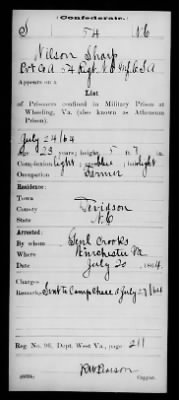 Confederate.
S 54 N.C.
Nilson Sharp
Pvt Co A 54 Regt N.C. Inf. C.S.A
Appears on a
List
of Prisoners confined in Military Prison at
Wheeling, Va. (also known as Atheneum
Prison).
July 24/64
Age 23 years; height, 5 ft.
Complexion light; blue; light
Occupation Farmer
Residence:
Town
County Davidson
State N.C
Arrested:
By whom Genl Crooks
Where Winchester Va
Date July 20, 1864.
Charges
Remarks: Sent to Camp Chase O July 23/64
Reg. No. 96, Dept. West Va., page 211
Copyist.